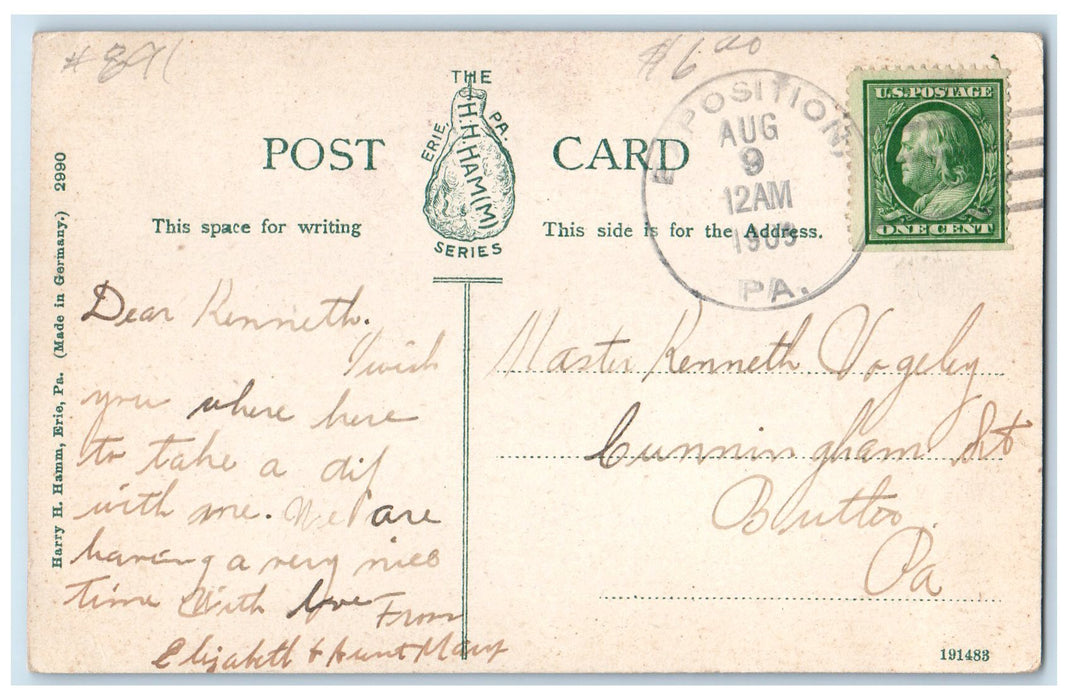 #891
$6.00
THE
H.H.HAM(M)
ERIE, PA.
SERIES
POST CARD
This space for writing
This side is for the Address.
EXPOSITION,
AUG
9
12AM
1909
PA.
U.S.POSTAGE
ONE CENT
Harry H. Hamm, Erie, Pa. (Made in Germany.) 2990
Dear Kenneth.
I wish
you where here
to take a dif
with me. We are
having a very nice
time With love From
Elizabeth & Aunt Mary
Master Kenneth Vogeley
Cunningham St
Butler
Pa
191483